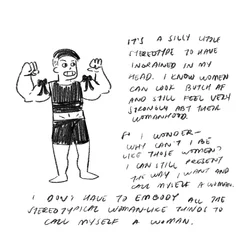 IT'S A SILLY LITTLE
STEREOTYPE TO HAVE
INGRAINED IN MY
HEAD. I KNOW WOMEN
CAN LOOK BUTCH AF
AND STILL FEEL VERY
STRONGLY ABT THEIR
WOMANHOOD.
I WONDER-
WHY CAN'T I BE
LIKE THOSE WOMEN?
I CAN STILL PRESENT
THE WAY I WANT AND
CALL MYSELF A WOMAN.
I DON'T HAVE TO EMBODY ALL THE
STEREOTYPICAL WOMAN-LIKE THINGS TO
CALL MYSELF A WOMAN.